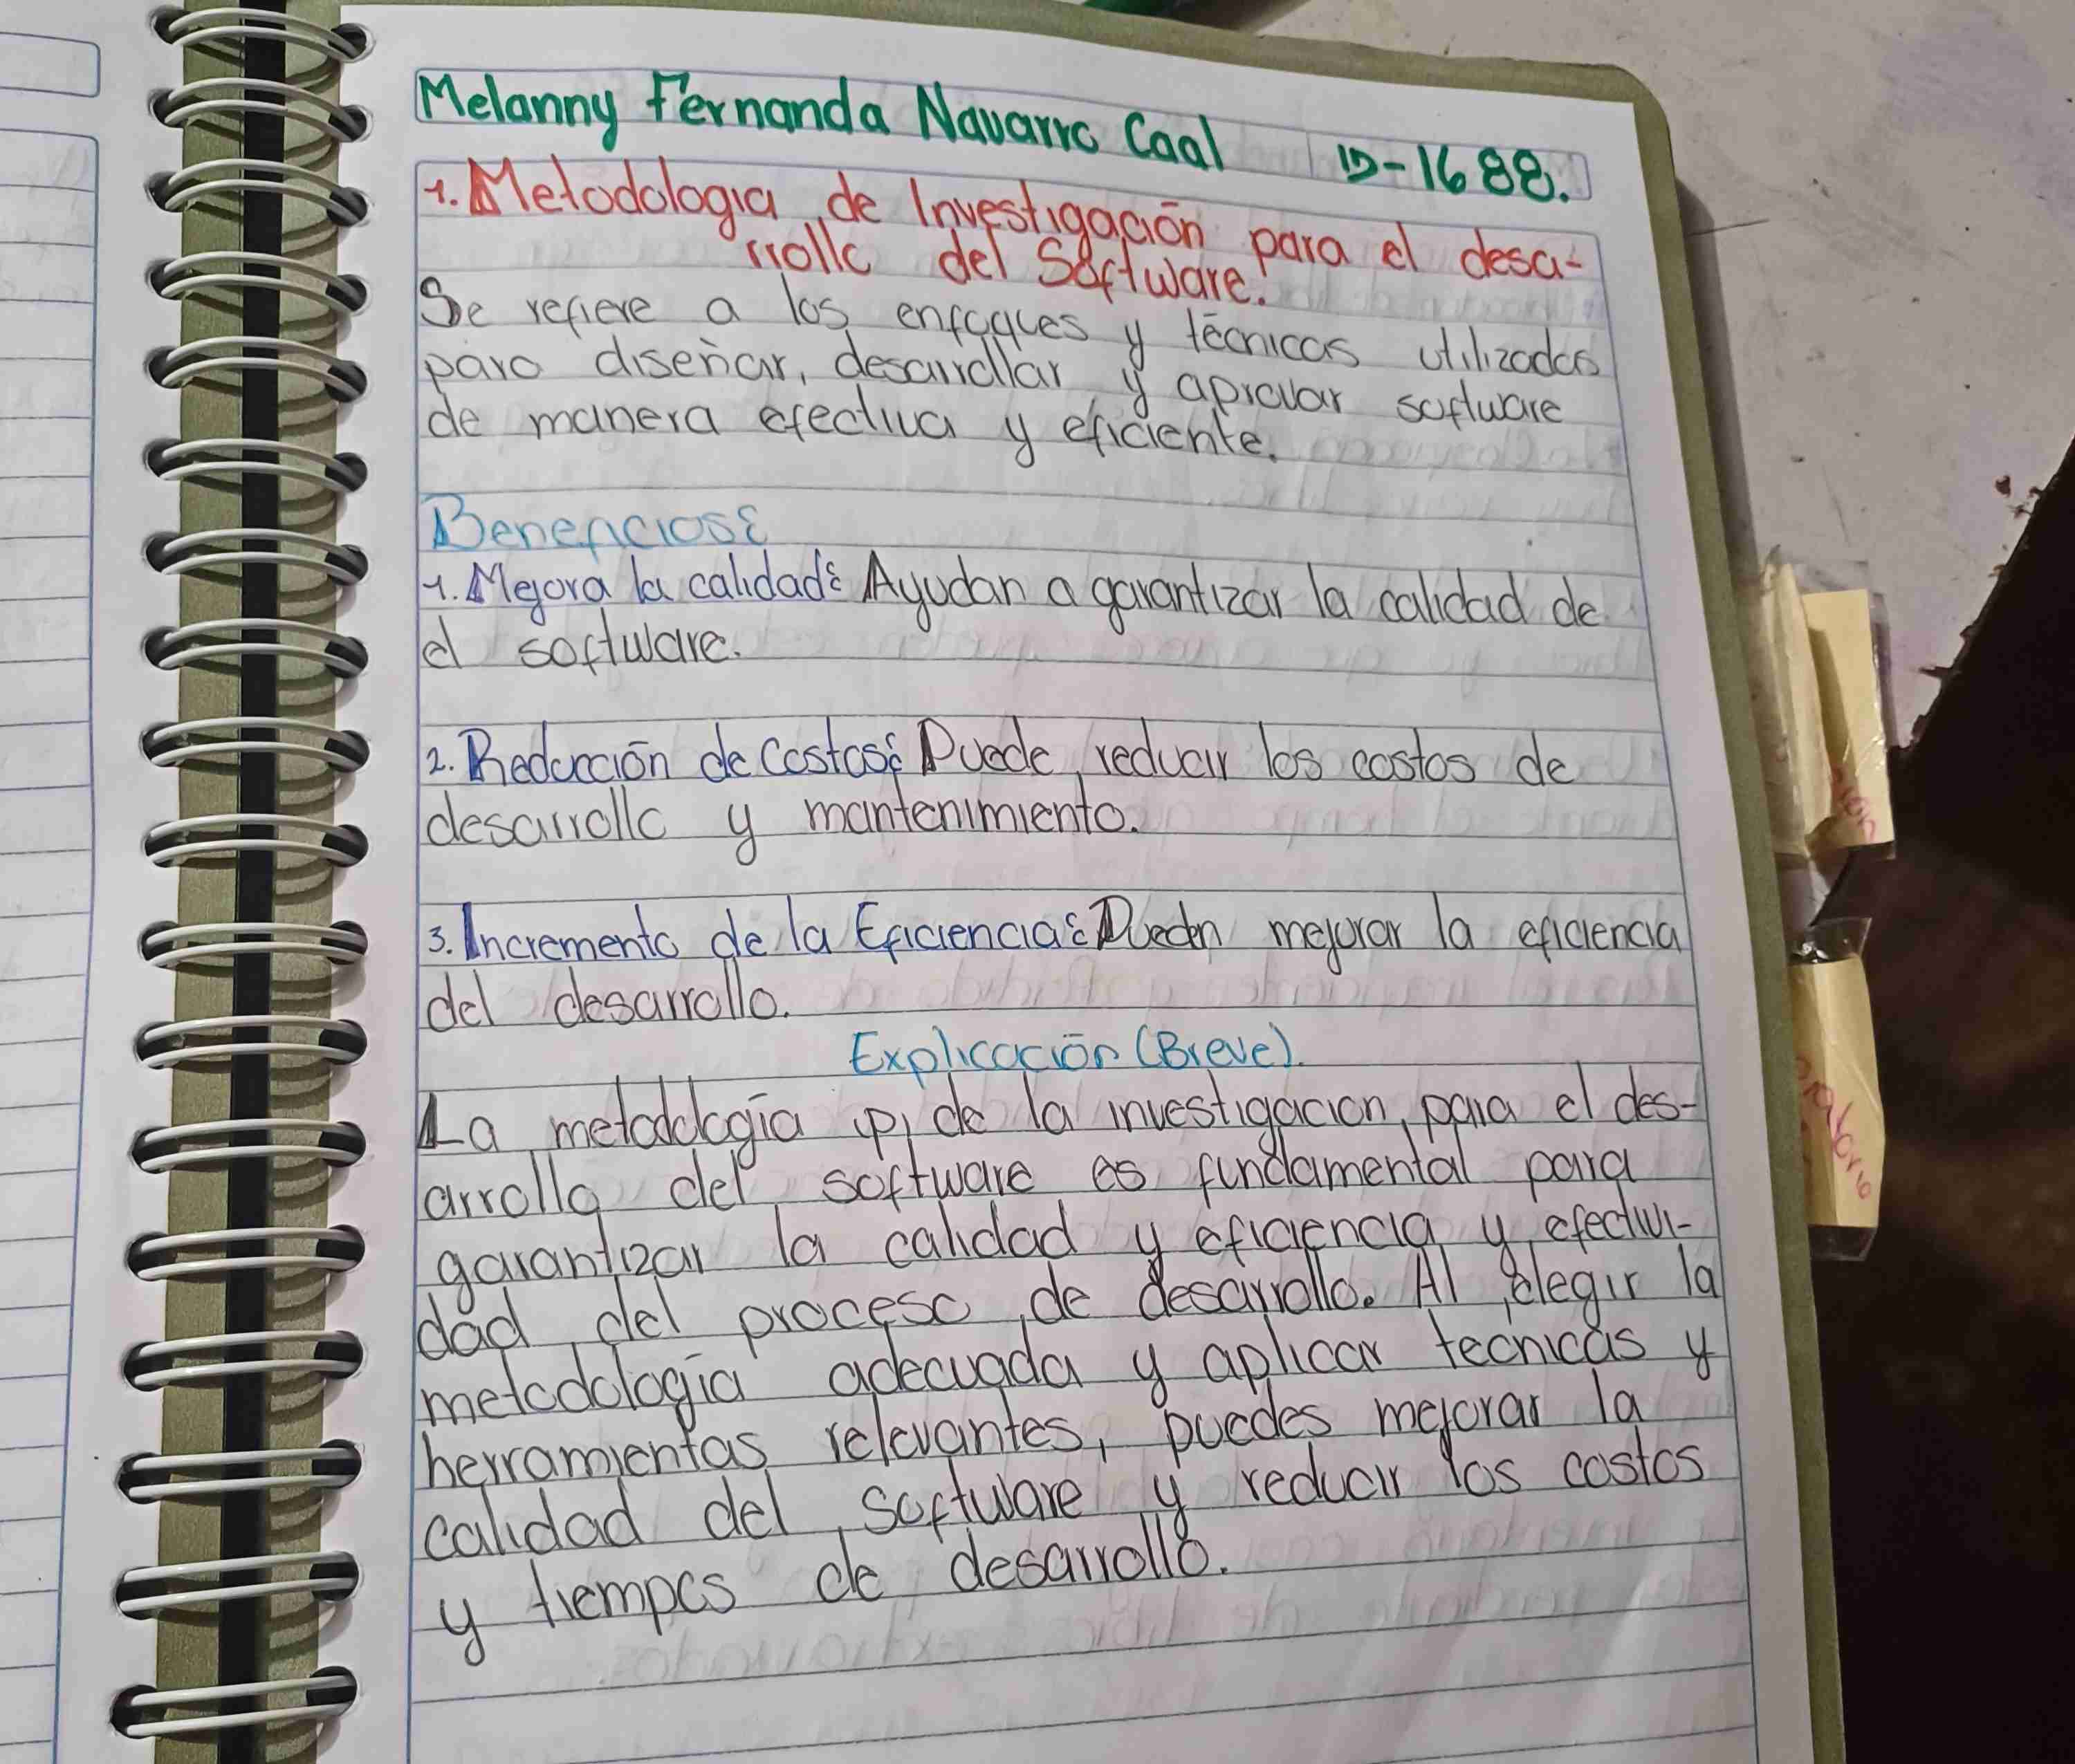 Melanny Fernanda Navarro Caal ID-1688.
1. Metodologia de Investigación para el desa-
rrollo del Software.
Se refiere a los enfoques y técnicas utilizadas
para diseñar, desarrollar y aprovar software
de manera efectiva y eficiente.
Beneficios:
1. Mejora la calidad: Ayudan a garantizar la calidad de
el software.
2. Reducción de Costos: Puede reducir los costos de
desarrollo y mantenimiento.
3. Incremento de la Eficiencia: Pueden mejorar la eficiencia
del desarrollo.
Explicación (Breve).
La metodología de la investigacion para el des-
arrollo del software es fundamental para
garantizar la calidad y eficiencia y efectivi-
dad del proceso de desarrollo. Al elegir la
metodología adecuada y aplicar tecnicas y
herramientas relevantes, puedes mejorar la
calidad del software y reducir los costos
y tiempos de desarrollo.